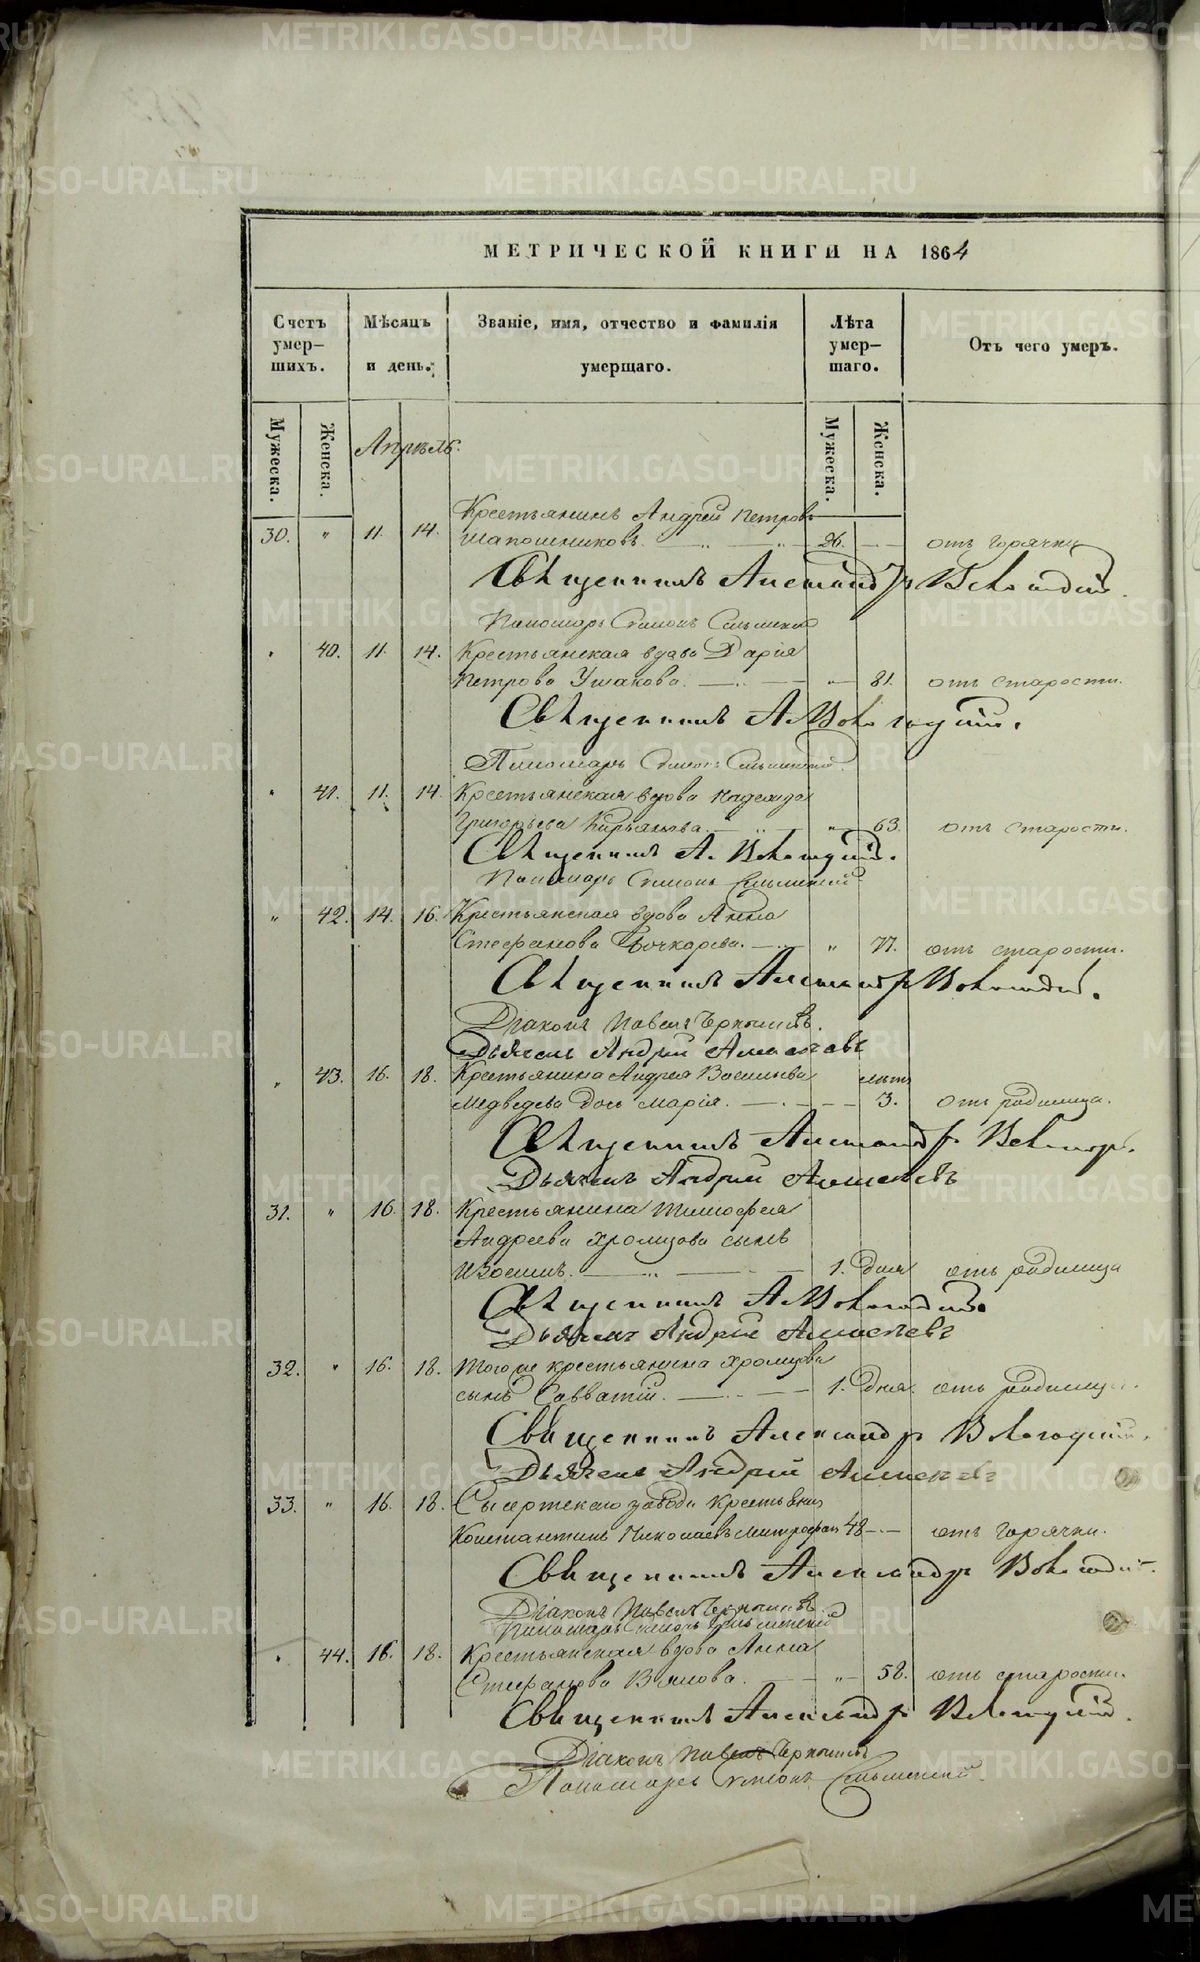 МЕТРИЧЕСКОЙ КНИГИ НА 1864
Счетъ умер-шихъ.
Мѣсяцъ и день.
Званіе, имя, отчество и фамилія умершаго.
Лѣта умер-шаго.
Отъ чего умеръ.
Мужеска.
Женска.
Апрѣль.
Мужеска.
Женска.
Крестьянинъ Андрей Петровъ
30. " 11. 14. Шапошниковъ. 26. отъ горячки
Священникъ Александръ Вологодскій
Пономарь Симонъ
" 40. 11. 14. Крестьянская вдова Дарія
Петрова Ушакова. " 81. отъ старости.
Священникъ А. Вологодскій.
Пономарь Симонъ
" 41. 11. 14. Крестьянская вдова Надежда
Григорьева Кирьянова " 63. отъ старости.
Священникъ А. Вологодскій.
Пономарь Симонъ
" 42. 14. 16. Крестьянская вдова Анна
Стефанова Бочкарева. " 77. отъ старости.
Священникъ Александръ Вологодскій.
Діаконъ Павелъ
Дьячекъ Андрей
" 43. 16. 18. Крестьянина Андрея Васильева лѣтъ
Медведева дочь Марія. 3. отъ родимца.
Священникъ Александръ
Дьячекъ Андрей
31. " 16. 18. Крестьянина Тимофея
Андреева Хромцова сынъ
1. дня отъ родимца
Священникъ А. Вологодскій.
Дьячекъ Андрей
32. " 16. 18. Того же крестьянина Хромцова
сынъ Савватій. 1. дня. отъ родимца.
Священникъ Александръ Вологодскій.
Дьячекъ Андрей
33. " 16. 18. Сысертскаго завода крестьянинъ
Константинъ Николаевъ 48 отъ горячки.
Священникъ Александръ Вологодскій.
Діаконъ Павелъ
Пономарь Симонъ
" 44. 16. 18. Крестьянская вдова Анна
Стефанова " 58. отъ старости.
Священникъ Александръ Вологодскій.
Діаконъ Павелъ
Пономарь Симонъ
METRIKI.GASO-URAL.RU